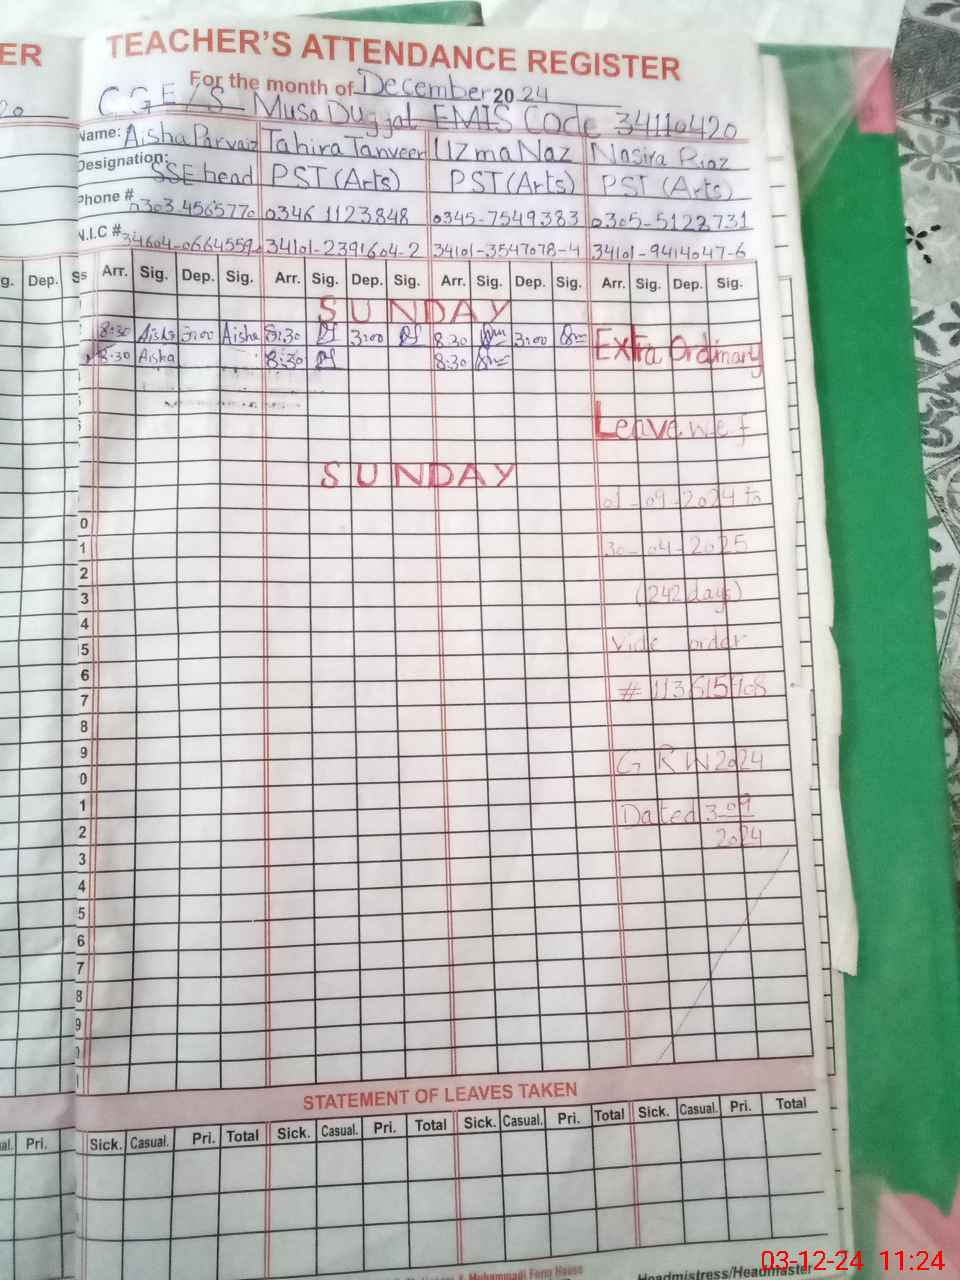 ER
TEACHER'S ATTENDANCE REGISTER
For the month of December 2024
C.G.E/S Musa Duggal EMIS Code 34110420
Name: Aisha Parvaiz Tahira Tanveer Uzma Naz Nasira Riaz
Designation: SSE head PST (Arts) PST (Arts) PST (Arts)
Phone # 0303-4565770 0346 1123848 0345-7549383 0305-5122731
N.I.C # 34101-2391604-2 34101-3547078-4 34101-9414047-6
g. Dep. Arr. Sig. Dep. Sig. Arr. Sig. Dep. Sig. Arr. Sig. Dep. Sig. Arr. Sig. Dep. Sig.
SUNDAY
8:30 Aisha 3:00 Aisha 8:30 3:00 8:30 3:00
8:30 Aisha 8:30 8:30
Extra Ordinary
Leave w.e.f
SUNDAY
01-09-2024 to
0
30-04-2025
1
2
(242 days)
3
4
Vide order
5
6
# 113615908
7
8
GRW 2024
9
0
Dated 3-09
1
2024
2
3
4
5
6
7
8
9
0
1
STATEMENT OF LEAVES TAKEN
Pri. Sick. Casual. Pri. Total Sick. Casual. Pri. Total Sick. Casual. Pri. Total Sick. Casual. Pri. Total
Muhammadi Form House
Headmistress/Headmaster
03-12-24 11:24